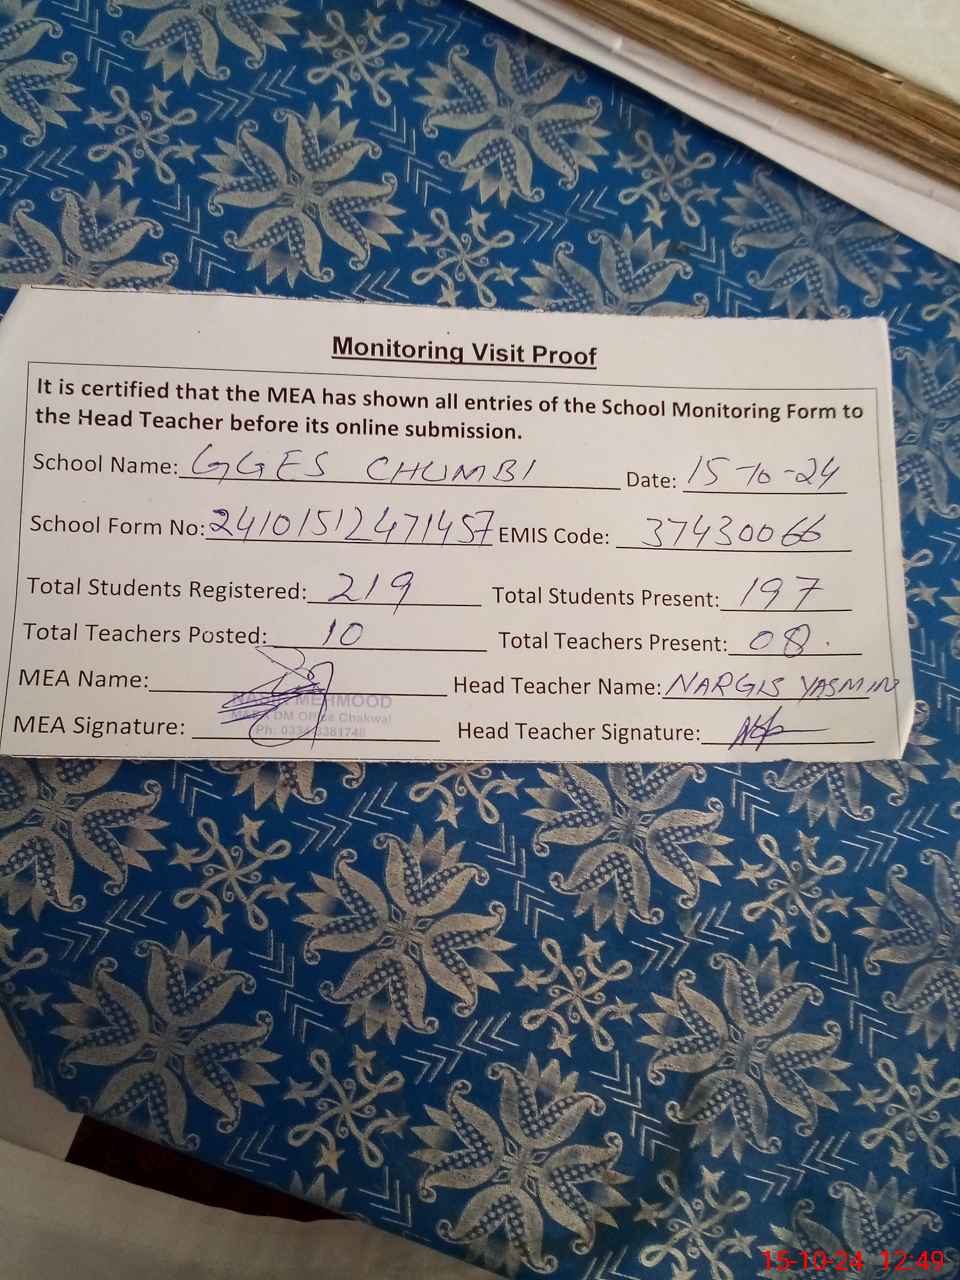 Monitoring Visit Proof
It is certified that the MEA has shown all entries of the School Monitoring Form to
the Head Teacher before its online submission.
School Name: GGES CHUMBI Date: 15-10-24
School Form No: 24101512471457 EMIS Code: 37430066
Total Students Registered: 219 Total Students Present: 197
Total Teachers Posted: 10 Total Teachers Present: 08
MEA Name: Head Teacher Name: NARGIS YASMIN
MEHMOOD
DM Office Chakwal
MEA Signature: Head Teacher Signature:
15-10-24 12:49